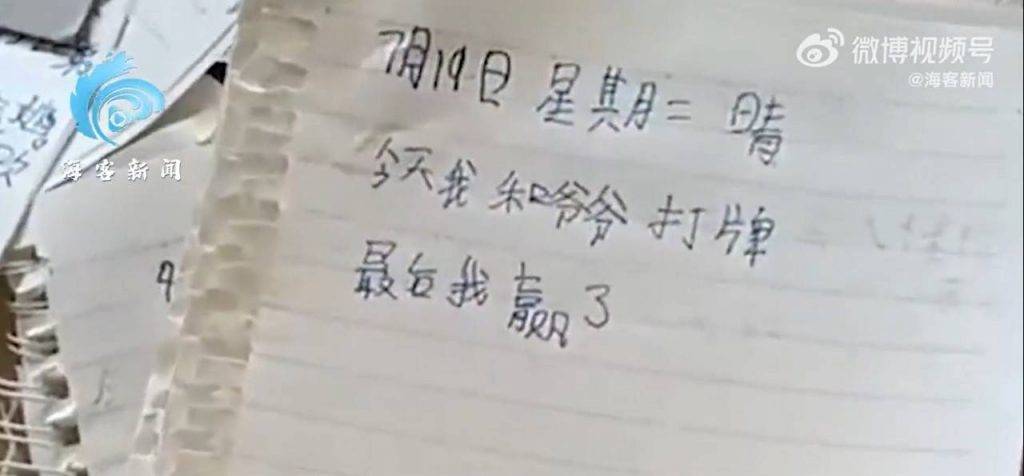 微博视频号
@海客新闻
海客新闻
7月19日 星期二 晴
今天我和爷爷打牌
最后我赢了